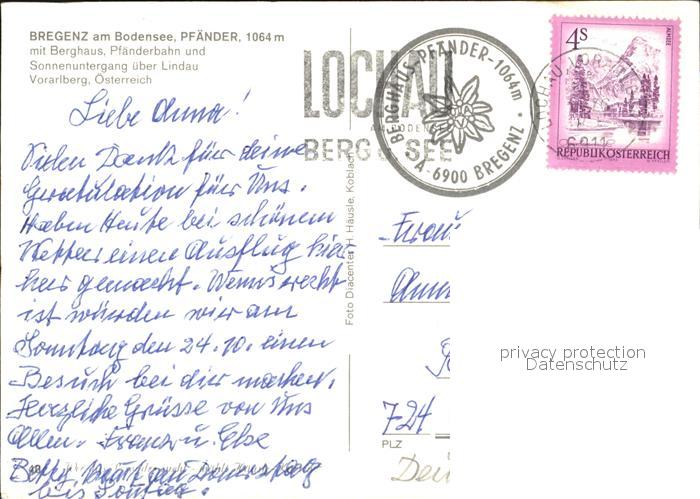 BREGENZ am Bodensee, PFÄNDER, 1064 m
mit Berghaus, Pfänderbahn und
Sonnenuntergang über Lindau
Vorarlberg, Österreich
Liebe Anna!
Vielen Dank für deine
Gratulation für Uns.
Haben Heute bei schönem
Wetter einen Ausflug hier
her gemacht. Wenns recht
ist würden wir am
Sonntag den 24.10. einen
Besuch bei dir machen.
Herzliche Grüsse von Uns
Allen. Franz u. Else
Betty, am Donnerstag
bis
Foto Diacenter H. Häusle, Koblach
LOCHAU
AM BODENSEE
BERG & SEE
BERGHAUS PFÄNDER-1064m
A-6900 BREGENZ
4S
ALMSEE
REPUBLIK ÖSTERREICH
LOCHAU, VOR
6911
Frau
Anna
724
PLZ
privacy protection
Datenschutz